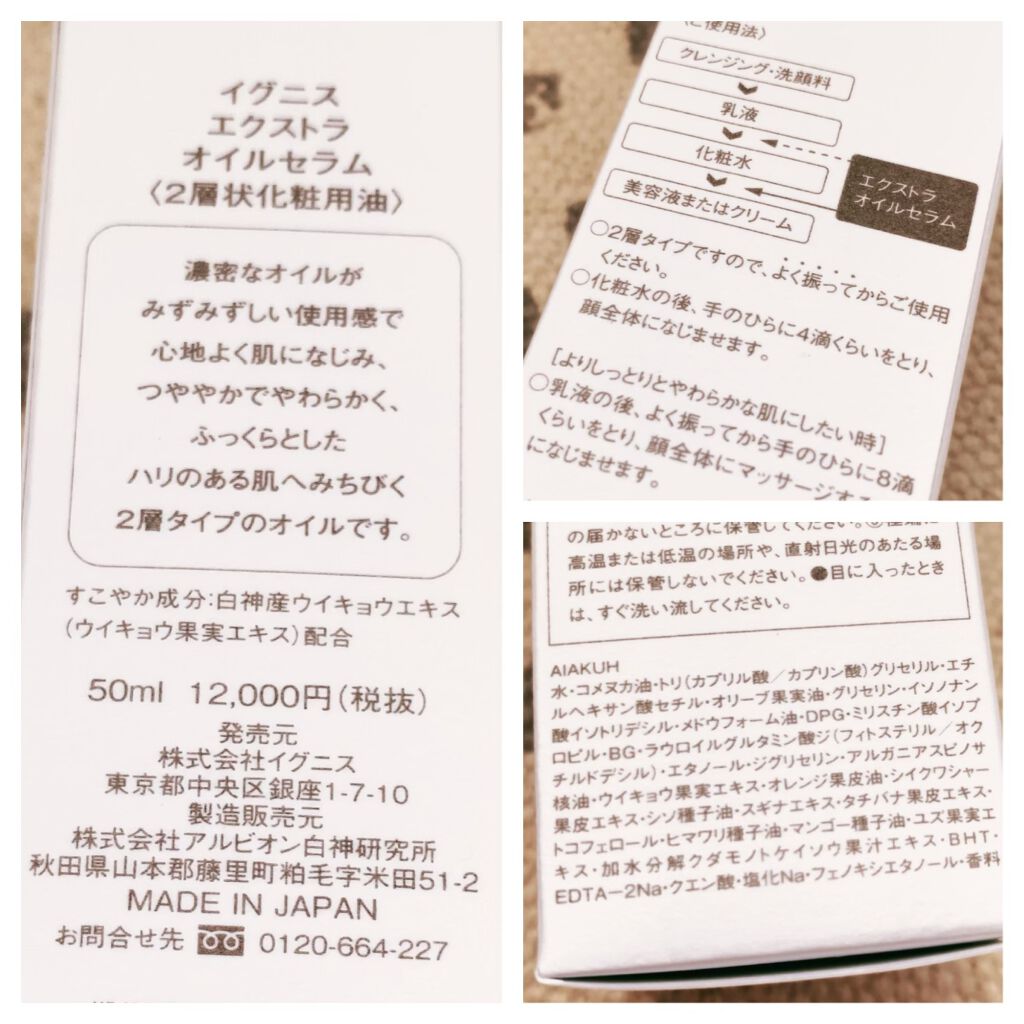 イグニス
エクストラ
オイルセラム
〈2層状化粧用油〉
濃密なオイルが
みずみずしい使用感で
心地よく肌になじみ、
つややかでやわらかく、
ふっくらとした
ハリのある肌へみちびく
2層タイプのオイルです。
すこやか成分:白神産ウイキョウエキス
(ウイキョウ果実エキス)配合
50ml 12,000円(税抜)
発売元
株式会社イグニス
東京都中央区銀座1-7-10
製造販売元
株式会社アルビオン白神研究所
秋田県山本郡藤里町粕毛字米田51-2
MADE IN JAPAN
お問合せ先 0120-664-227
ご使用法〉
クレンジング・洗顔料
乳液
化粧水
美容液またはクリーム
エクストラ
オイルセラム
○2層タイプですので、よく振ってからご使用
ください。
○化粧水の後、手のひらに4滴くらいをとり、
顔全体になじませます。
[よりしっとりとやわらかな肌にしたい時]
○乳液の後、よく振ってから手のひらに8滴
くらいをとり、顔全体にマッサージする
になじませます。
の届かないところに保管してください。
高温または低温の場所や、直射日光のあたる場
所には保管しないでください。●目に入ったとき
は、すぐ洗い流してください。
AIAKUH
水・コメヌカ油・トリ(カプリル酸/カプリン酸)グリセリル・エチ
ルヘキサン酸セチル・オリーブ果実油・グリセリン・イソノナン
酸イソトリデシル・メドウフォーム油・DPG・ミリスチン酸イソプ
ロピル・BG・ラウロイルグルタミン酸ジ(フィトステリル/オク
チルドデシル)・エタノール・ジグリセリン・アルガニアスピノサ
核油・ウイキョウ果実エキス・オレンジ果皮油・シイクワシャー
果皮エキス・シソ種子油・スギナエキス・タチバナ果皮エキス・
トコフェロール・ヒマワリ種子油・マンゴー種子油・ユズ果実エ
キス・加水分解クダモノトケイソウ果汁エキス・BHT・
EDTA-2Na・クエン酸・塩化Na・フェノキシエタノール・香料